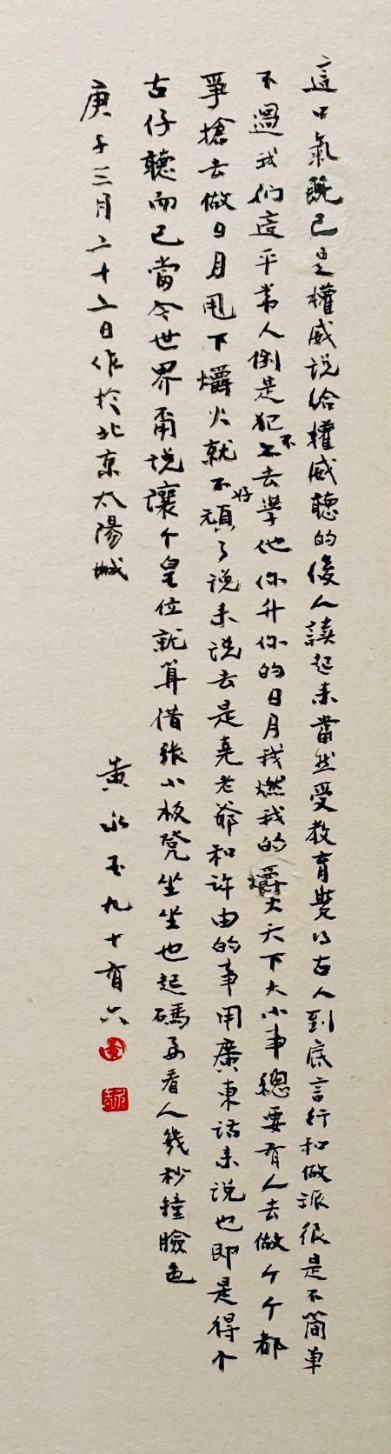 這口氣既已是權威说给權威聽的後人讀起来當然受教育覺得古人到底言行和做派很是不简單
不過我们這平常人倒是犯不上去學他你升你的日月我燃我的爝火天下大小事總要有人去做个个都
爭搶去做日月甩下爝火就不好頑了说来说去是堯老爺和许由的事用廣東话来说也即是得个
古仔聽而已當今世界甭说讓个皇位就算借张小板凳坐坐也起碼要看人幾秒鐘臉色
庚子三月二十二日作於北京太陽城
黄永玉九十有六